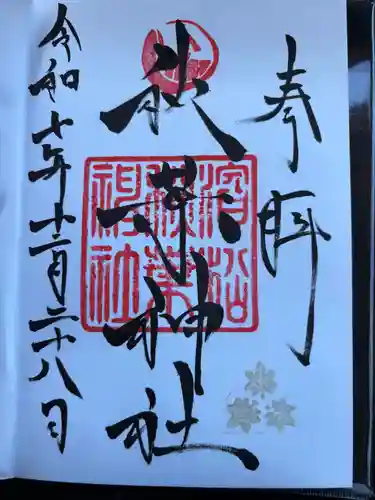 奉拝
秋葉神社
濱松
秋葉
神社
令和七年十二月二十八日